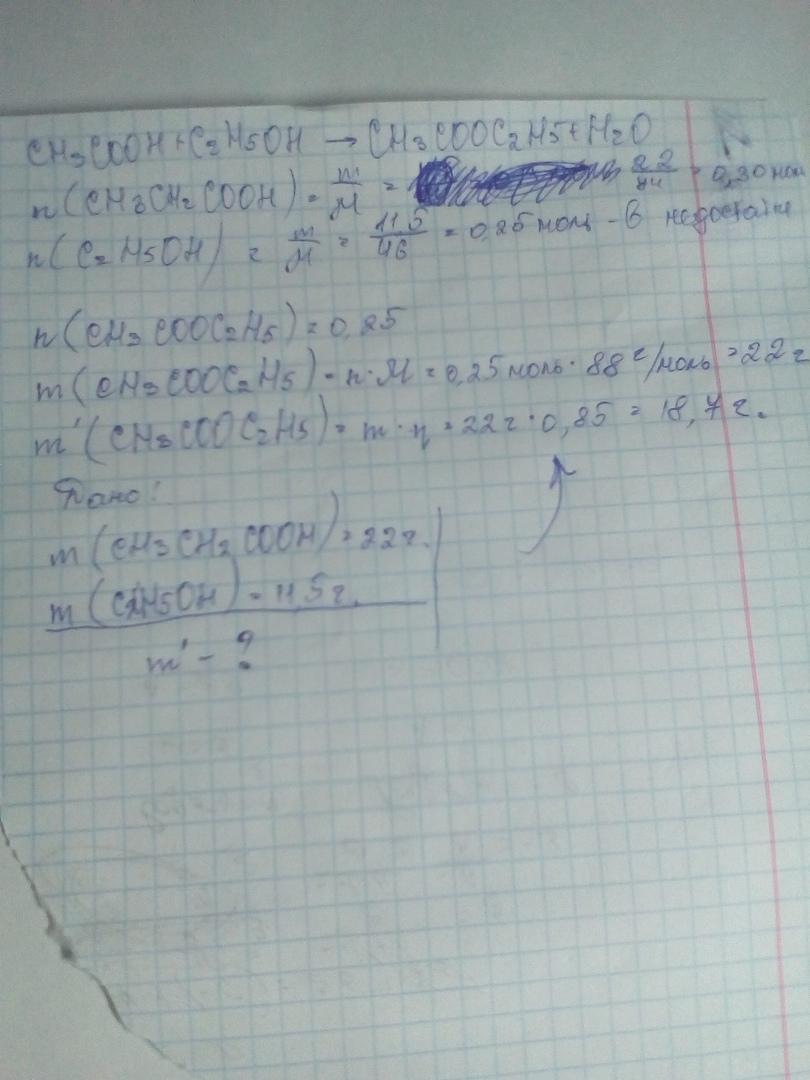 CH3COOH+C2H5OH → CH3COOC2H5+H2O
n(CH3CH2COOH) = m/M = 22/74 = 0,30 моль
n(C2H5OH) = m/M = 11,5/46 = 0,25 моль - в недостатке
n(CH3COOC2H5) = 0,25
m(CH3COOC2H5) = n·M = 0,25 моль · 88 г/моль = 22 г
m'(CH3COOC2H5) = m·η = 22 г · 0,85 = 18,7 г.
Дано:
m(CH3CH2COOH) = 22 г.
m(C2H5OH) = 11,5 г.
m' - ?